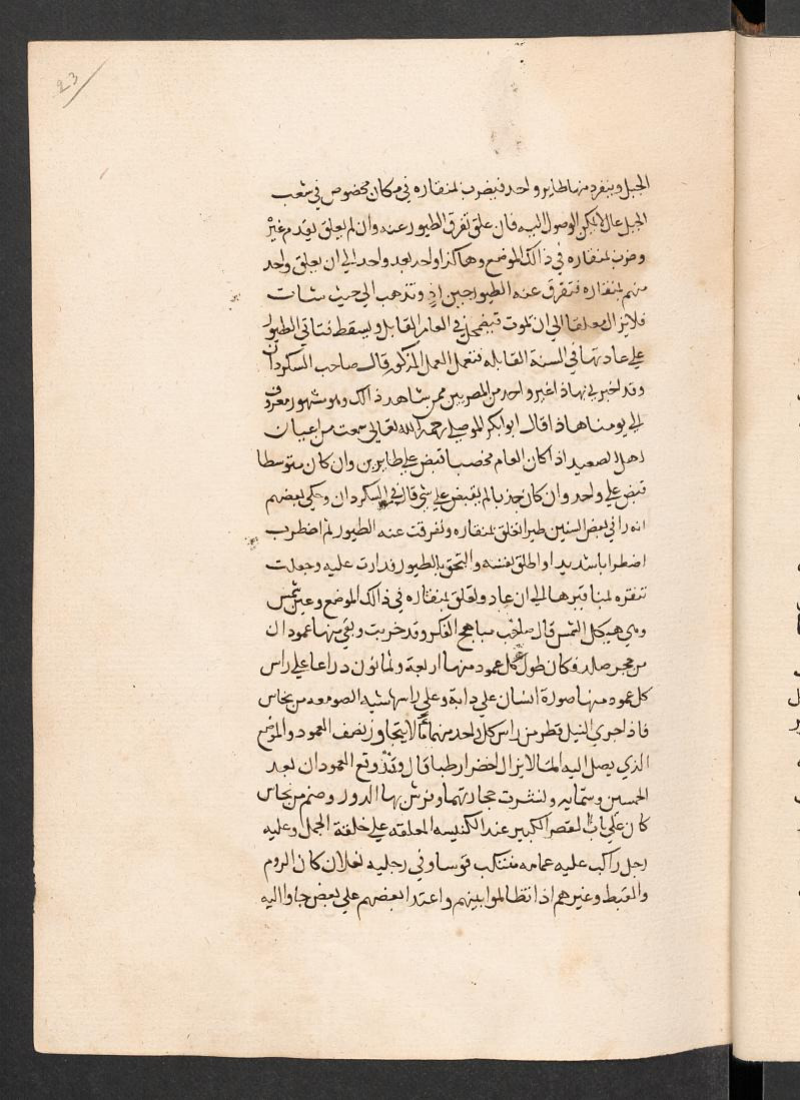 23
الجبل وينفرد منها طاير واحد فيضرب بمنقاره في مكان مخصوص في شعب
الجبل عال لا يمكن الوصول اليه فان علق تفرق الطيور عنه وان لم يعلق يقدم غيره
وضرب بمنقاره في ذالك الموضع وهاكذا واحد بعد واحد الي ان يعلق واحد
منهم بمنقاره فتفرق عنه الطيور حين اذٍ وتذهب الي حيث شات
فلا يزال معلقا الي ان يموت فيضمحل في العام القابل ويسقط فتاتي الطيور
علي عادتها في السنة القابله فتعمل العمل المذكور قال صاحب السكردان
وقد اخبرني بهاذا غير واحد من المصريين ممن شاهد ذالك وهو مشهور معروف
الي يومنا هاذا قال ابو بكر الموصلي رحمه الله تعالي سمعت من اعيان
اهل الصعيد اذا كان العام مخصبا قبض علي طايرين وان كان متوسطا
قبض علي واحد وان كان جذبا لم يقبض علي شي قال في السكردان وحكي بعضهم
انه راي في بعض السنين طيرا تعلق بمنقاره وتفرقت عنه الطيور ثم اضطرب
اضطرابا شديدا واطلق نفسه والتحق بالطيور فدارت عليه وجعلت
تنقره بمناقيرها الي ان عاد وتعلق بمنقاره في ذالك الموضع وعين شمس
وهي هيكل الشمس قال صاحب مباهج الفكر وقد خربت وبقي منها عمودان
من حجر صلد فكان طول كل عمود منهما اربعة وثمانون دراعا علي راس
كل عمود منها صورة انسان علي دابة وعلي راسها شبه الصومعه من نحاس
فاذا جري النيل قطر من راس كل واحد منهما ما لا يتجاوز نصف العمود والموضع
الذي يصل اليه الما لا يزال اخضر ارطبا قال وقد وقع العمودان بعد
الخمسين وستمايه ونشرت حجارتهما وفرش بها الدور وصنم من نحاس
كان علي باب القصر الكبير عند الكنيسه المعلقه علي خلقة الجمل وعليه
رجل راكب عليه عمامه متنكب قوسا وفي رجليه نعلان كان الروم
والقبط وغيرهم اذا تظالموا بينهم واعتدا بعضهم علي بعض جاوا اليه